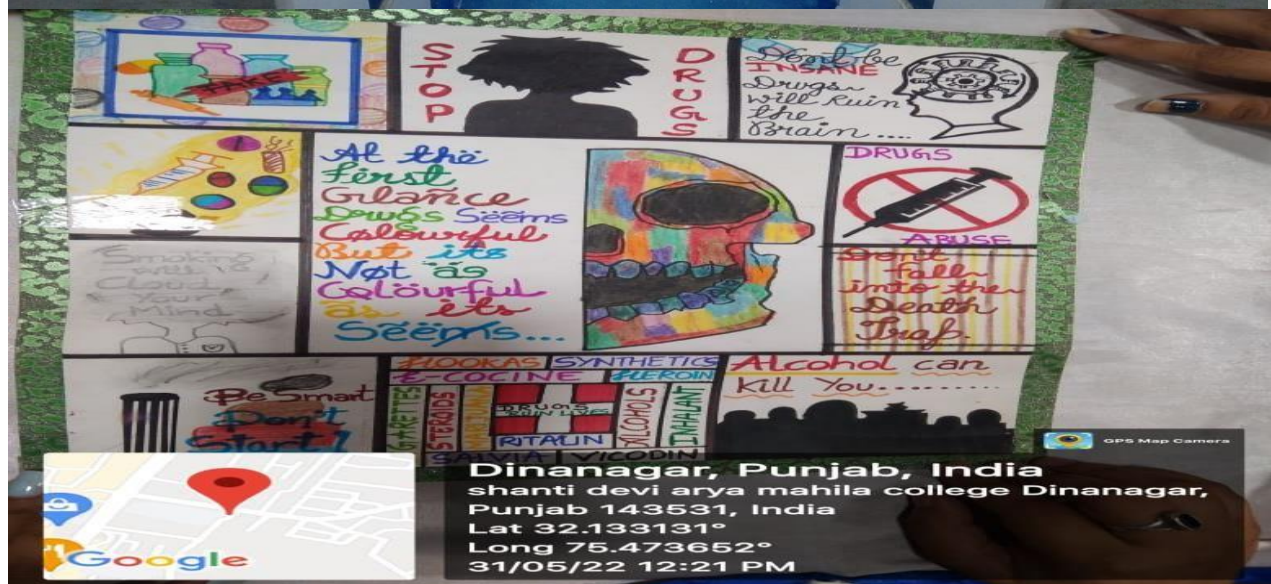 STOP
DRUGS
Don't be
INSANE
Drugs
will Ruin
the
Brain....
At the
first
Glance
Drugs Seems
Colourful
But its
Not as
Colourful
as its
Seems...
DRUGS
ABUSE
Smoking
will
Cloud
Your
Mind
Don't
fall
into the
Death
Trap.
Be Smart
Don't
Start!
HOOKAS SYNTHETICS
E-COCINE HEROIN
STEROIDS
DRUGS
RUIN LIVES
ALCOHOLS
INHALANT
RITALIN
SALVIA VICODIN
Alcohol can
Kill You.........
GPS Map Camera
Google
Dinanagar, Punjab, India
shanti devi arya mahila college Dinanagar,
Punjab 143531, India
Lat 32.133131°
Long 75.473652°
31/05/22 12:21 PM